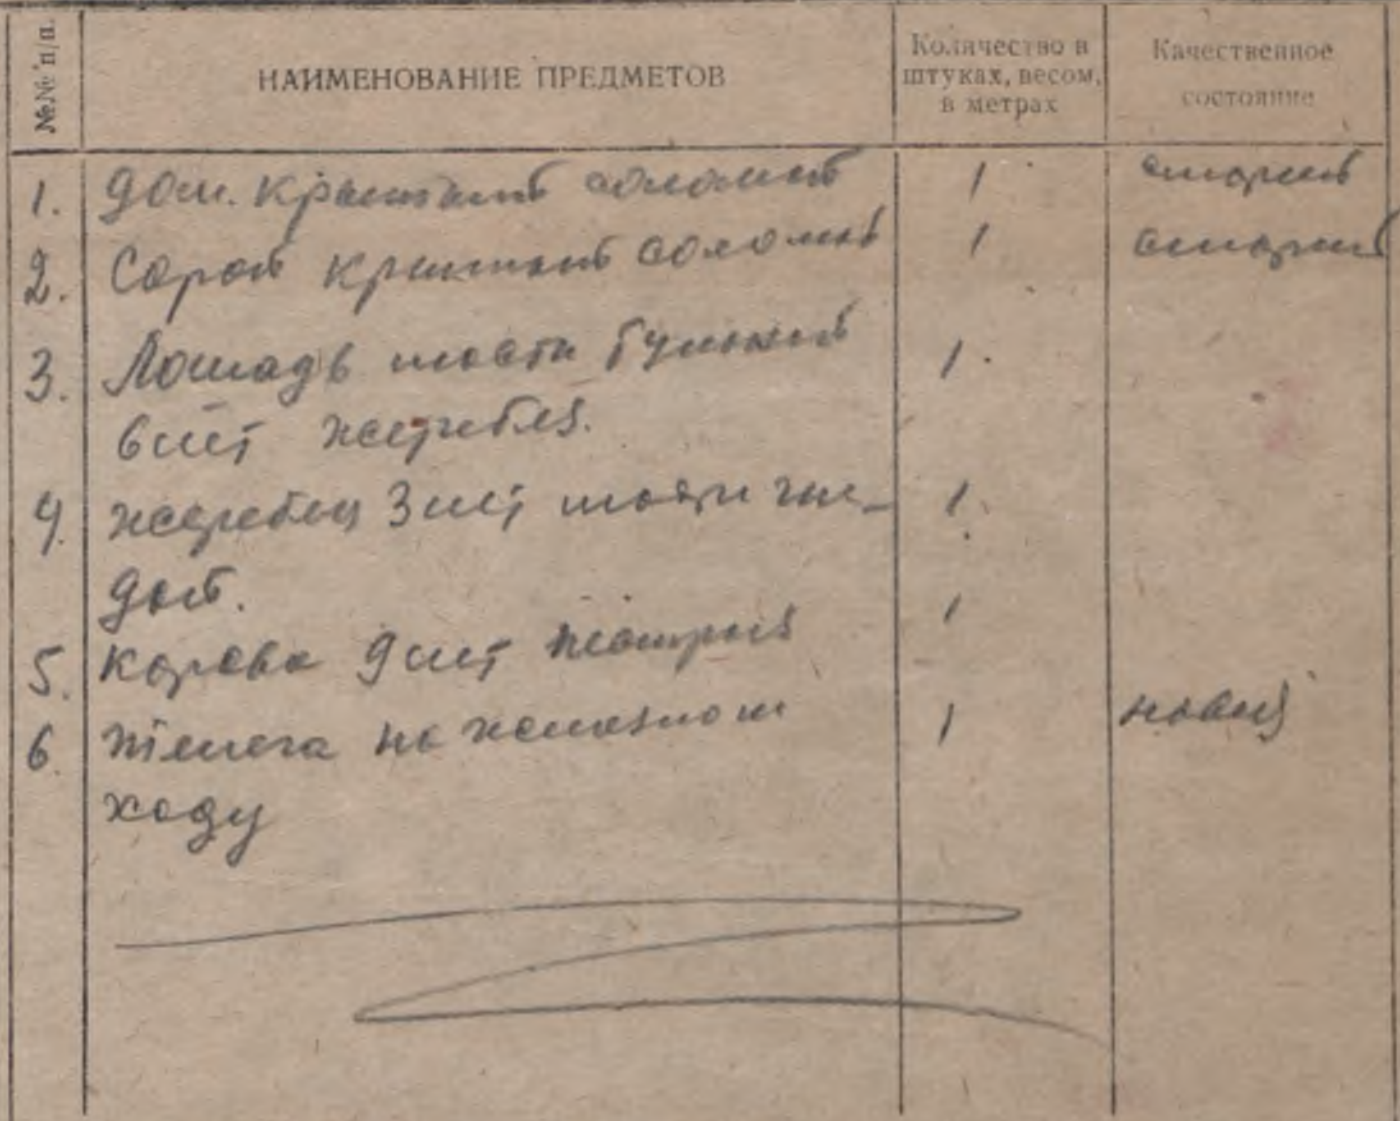 №№ п/п.
НАИМЕНОВАНИЕ ПРЕДМЕТОВ
Количество в
штуках, весом,
в метрах
Качественное
состояние
1. дом. крытый соломой 1 старый
2. Сарай крытый соломой 1 старый
3. Лошадь масти 1.
6 лет жеребая.
4. жеребец 3 лет масти гне- 1.
дой.
5. Корова 9 лет 1
6 телега на железном 1 новая
ходу